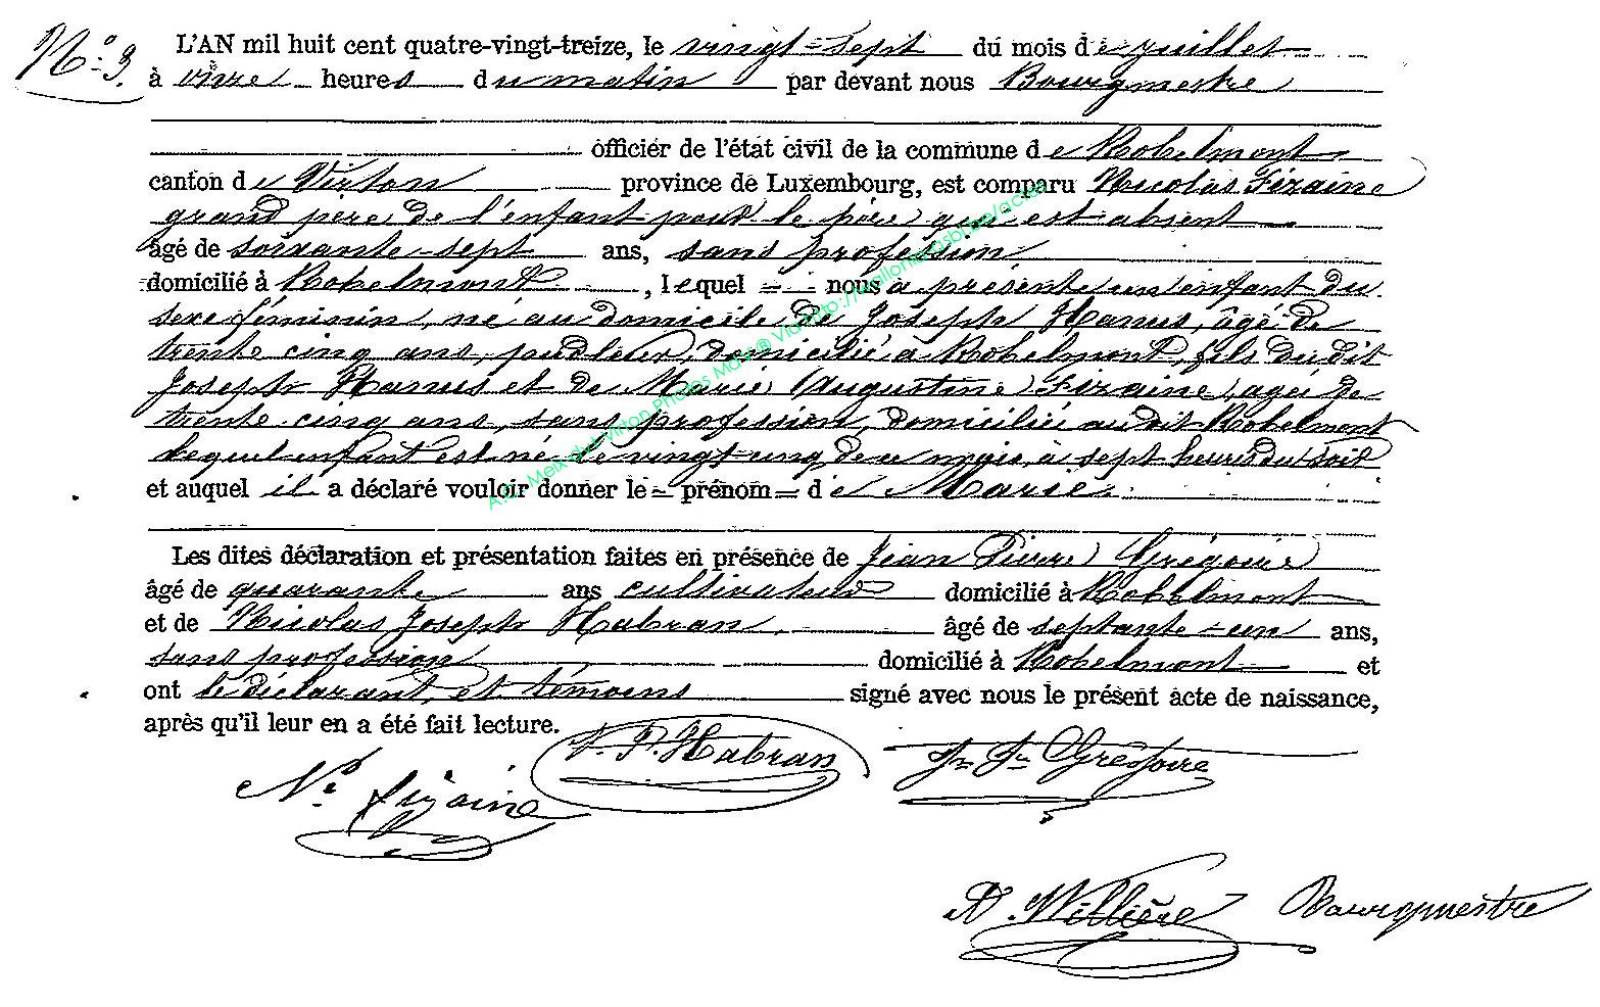 N.o 9. L'AN mil huit cent quatre-vingt-treize, le vingt-sept du mois de juillet
à onze heures du matin par devant nous Bourgmestre
officier de l'état civil de la commune de Robelmont
canton de Virton province de Luxembourg, est comparu Nicolas Fizaine
grand père de l'enfant pour le père qui est absent
âgé de soixante-sept ans, sans profession
domicilié à Robelmont, lequel nous a présenté un enfant du
sexe féminin, né au domicile de Joseph Hanus, âgé de
trente cinq ans, pudleur, domicilié à Robelmont, fils du dit
Joseph Hanus et de Marie Augustine Fizaine, agée de
trente cinq ans, sans profession, domiciliée au dit Robelmont
lequel enfant est né le vingt cinq de ce mois, à sept heures du soir
et auquel il a déclaré vouloir donner le prénom de Marie.
Les dites déclaration et présentation faites en présence de Jean Pierre Grégoire
âgé de quarante ans cultivateur domicilié à Robelmont
et de Nicolas Joseph Habran, âgé de septante-un ans,
sans profession domicilié à Robelmont et
ont le déclarant et témoins signé avec nous le présent acte de naissance,
après qu'il leur en a été fait lecture.
Habran Grégoire
N.s Fizaine
A. Willière Bourgmestre